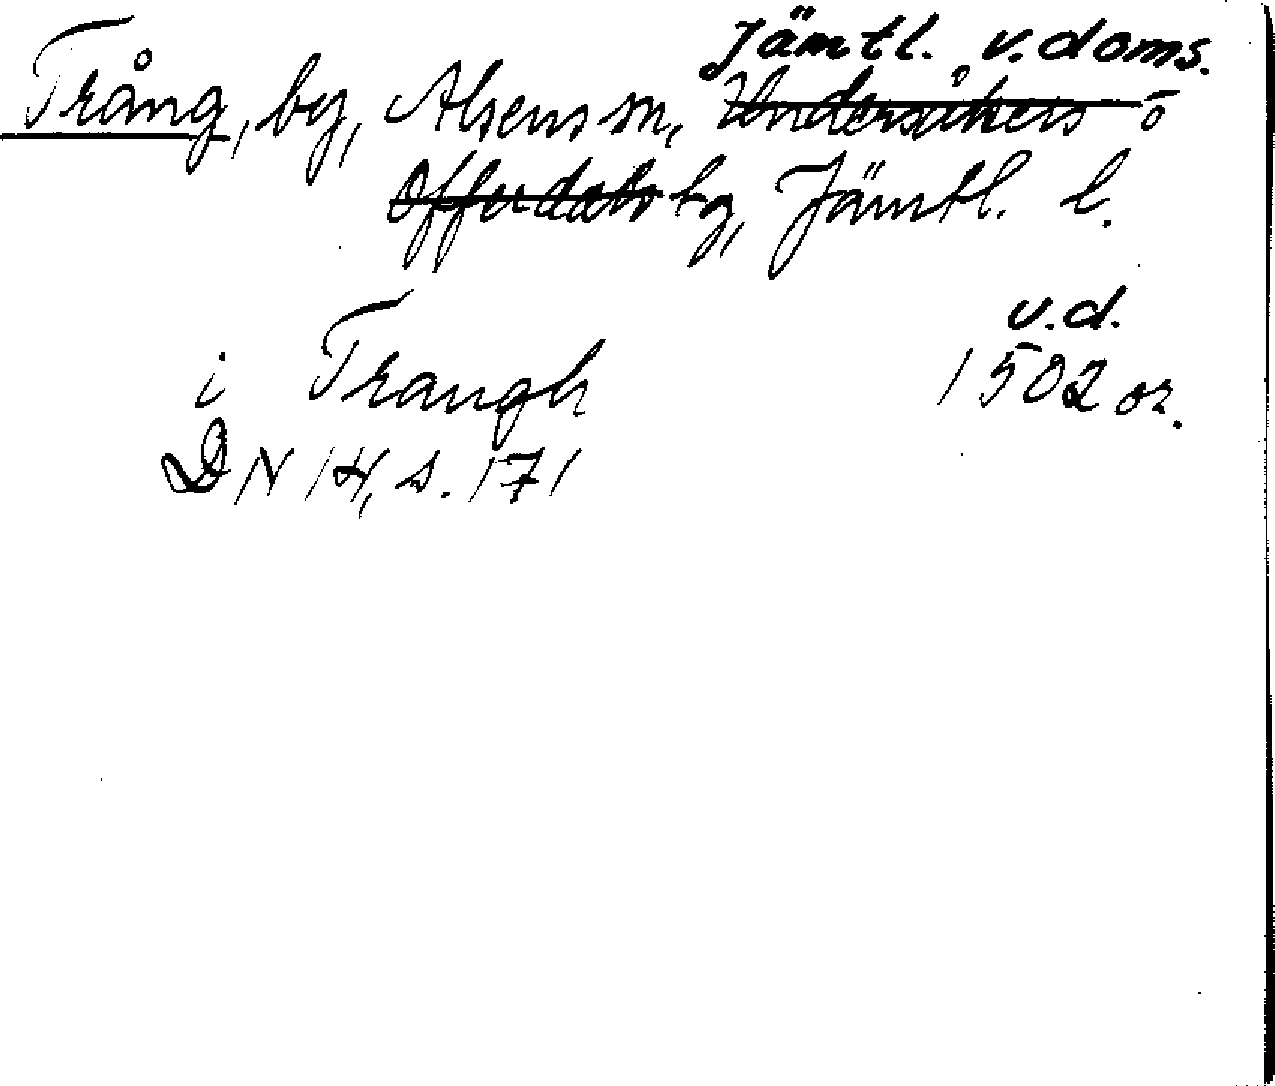 Jämtl. v. doms.
Trång, by, Alsens sn, Undersåkers o
Offerdals tg, Jämtl. l.
v.d.
i Trangh 1502 or.
DN 14, s. 171